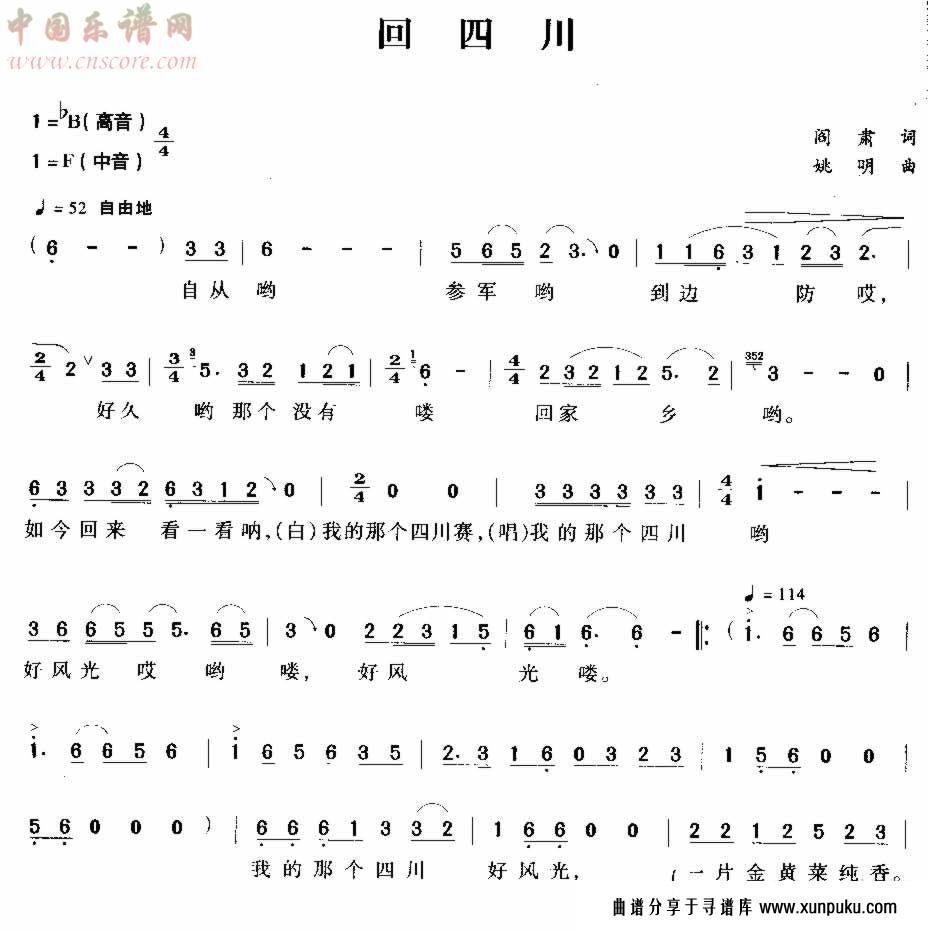 中国乐谱网
www.cnscore.com
回四川
1=♭B(高音) 4/4
1=F(中音)
阎肃 词
姚明 曲
♩=52 自由地
(6 - - ) 3 3 | 6 - - - | 5 6 5 2 3. 0 | 1 1 6 3 1 2 3 2. |
自从哟 参军哟 到边防哎,
2/4 2 ∨ 3 3 | 3/4 3 5. 3 2 1 2 1 | 2/4 1 6 - | 4/4 2 3 2 1 2 5. 2 | 352 3 - - 0 |
好久哟那个没有喽 回家乡哟。
6 3 3 3 2 6 3 1 2 0 | 2/4 0 0 | 3 3 3 3 3 3 | 4/4 i - - - |
如今回来 看一看呐,(白)我的那个四川赛,(唱)我的那个四川 哟
3 6 6 5 5 5. 6 5 | 3 0 2 2 3 1 5 | 6 1 6. 6 - ‖: ♩=114 (i. 6 6 5 6 |
好风光哎哟喽,好风光喽。
i. 6 6 5 6 | i 6 5 6 3 5 | 2. 3 1 6 0 3 2 3 | 1 5 6 0 0 |
5 6 0 0 0 ) | 6 6 6 1 3 3 2 | 1 6 6 0 0 | 2 2 1 2 5 2 3 |
我的那个四川 好风光, (一片金黄菜纯香。
曲谱分享于寻谱库 www.xunpuku.com